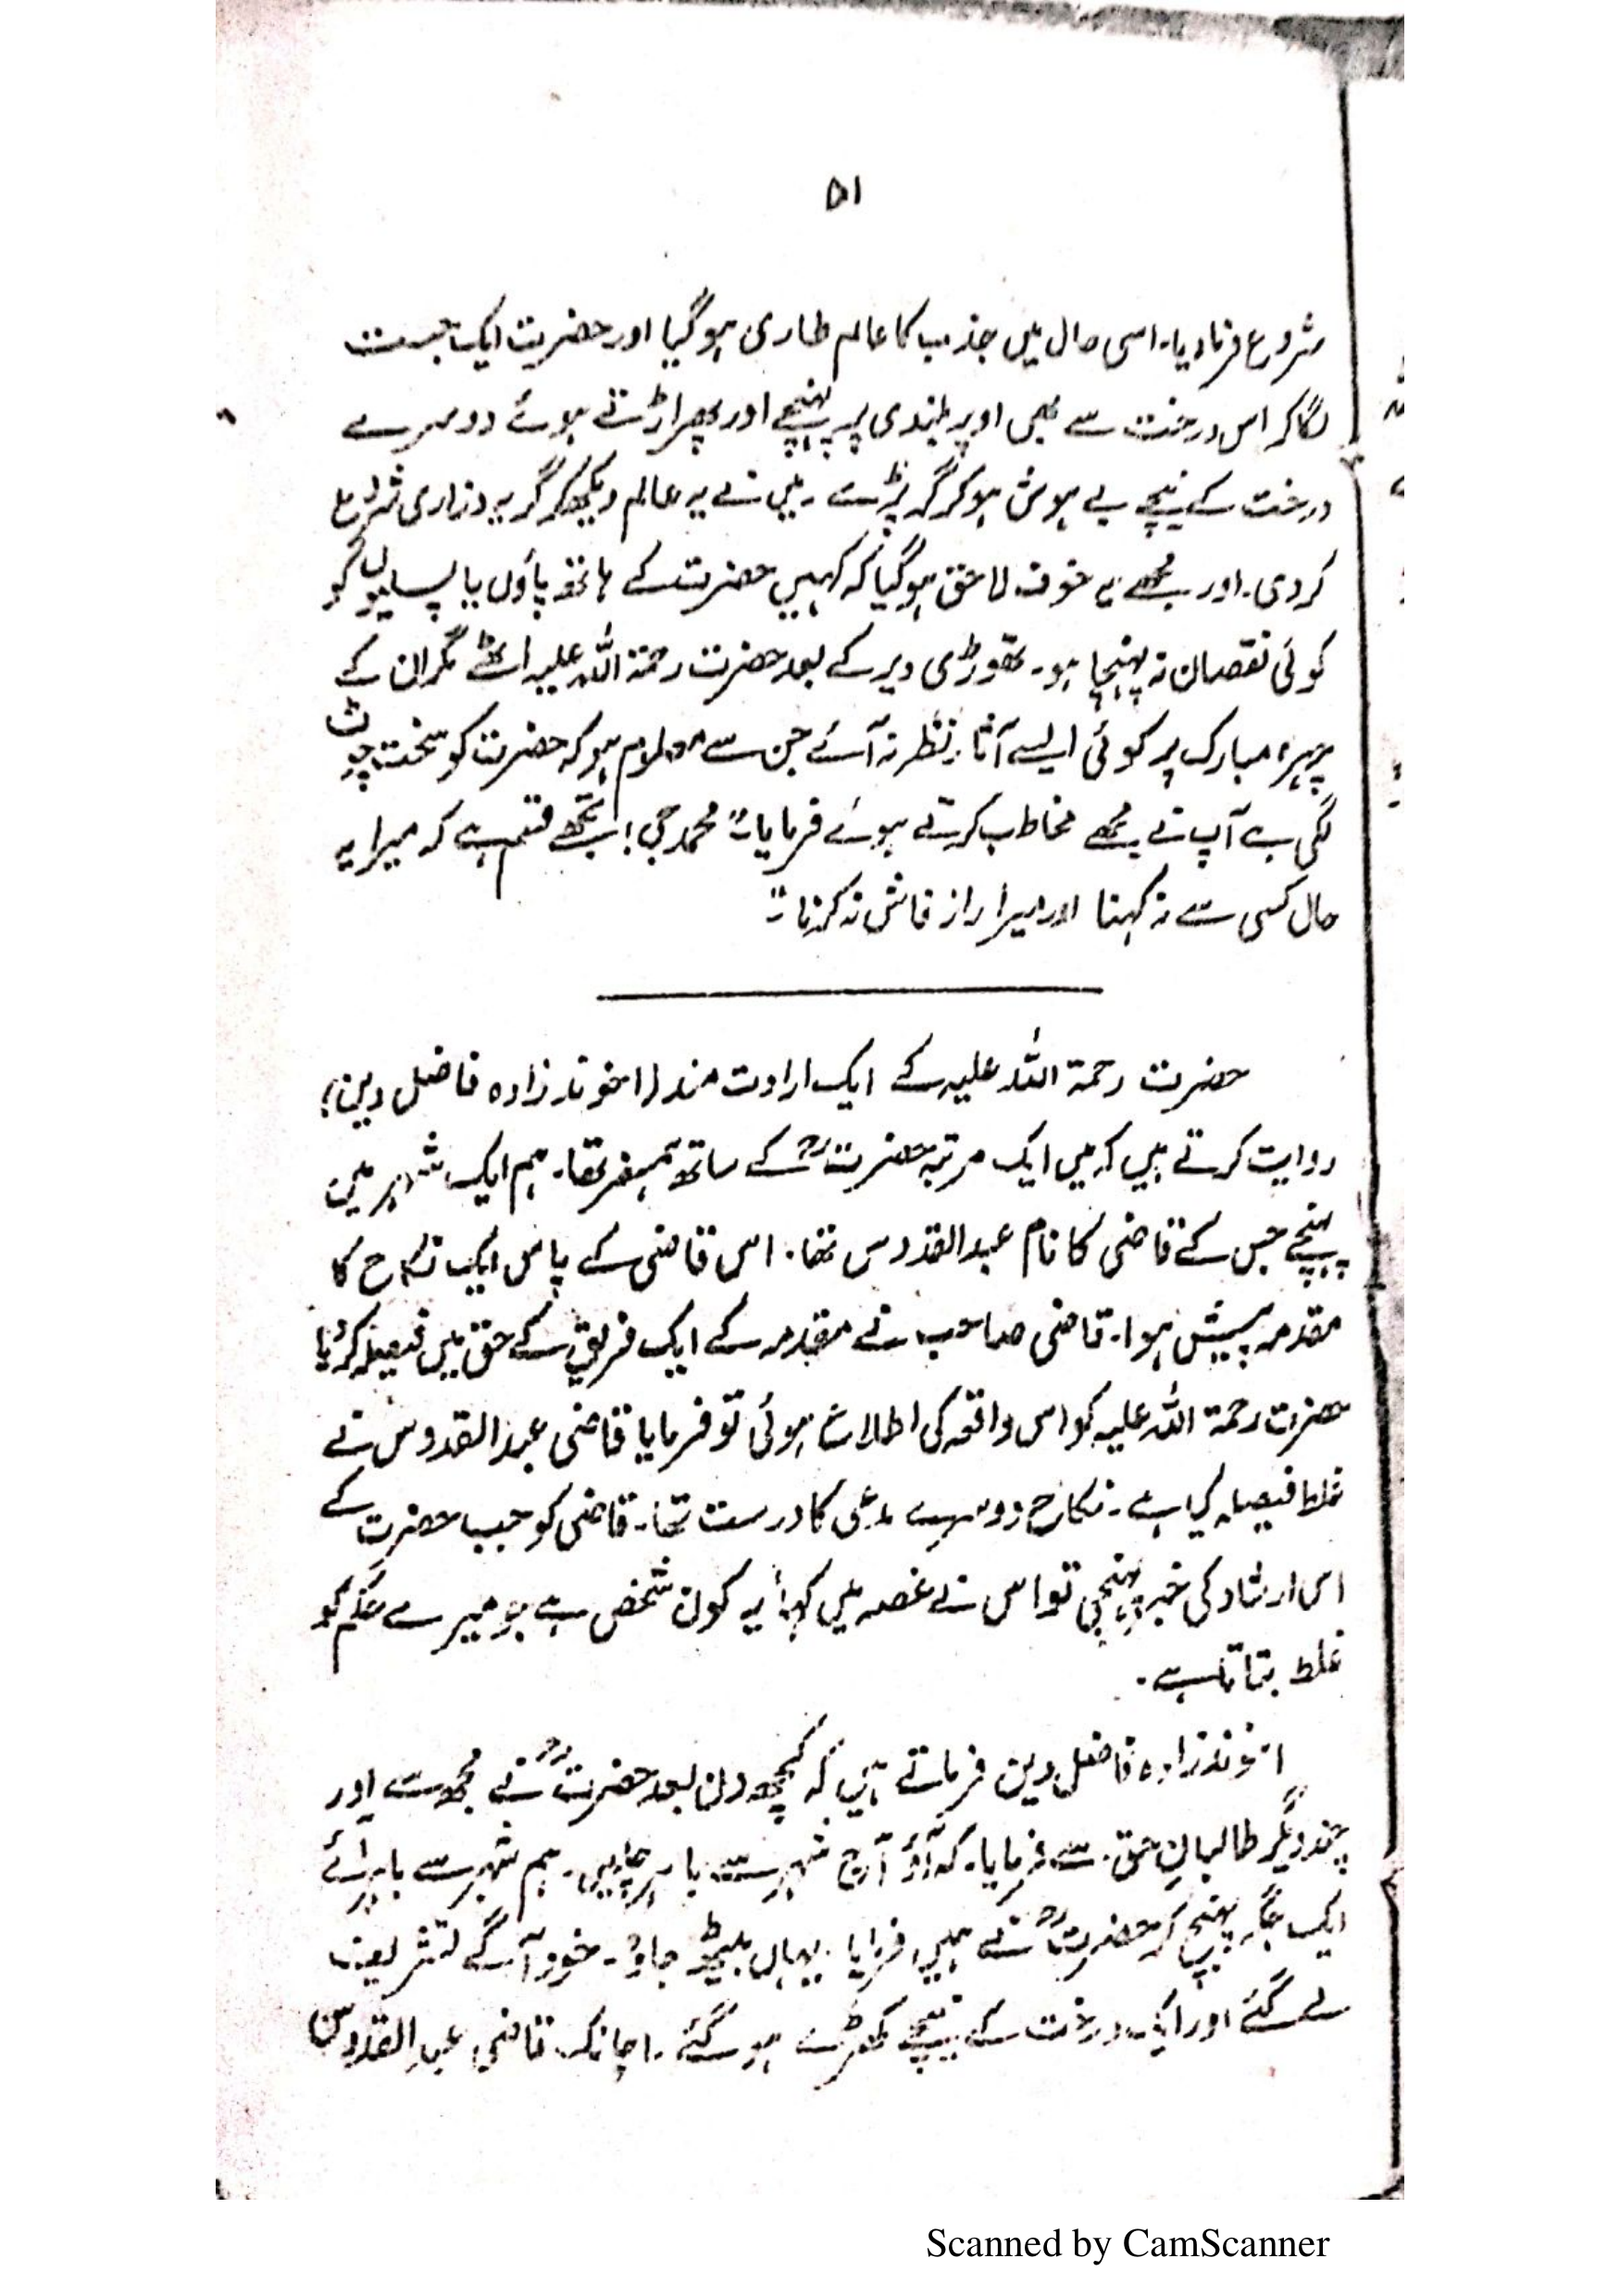 ۵۱
شروع فرما دیا۔ اسی حال میں جذب کا عالم طاری ہو گیا اور حضرت ایک جست
لگا کر اس درخت سے بھی اوپر بلندی پر پہنچے اور پھر اڑتے ہوئے دوسرے
درخت کے نیچے بے ہوش ہو کر گر پڑے۔ میں نے یہ عالم دیکھ کر گریہ و زاری شروع
کر دی۔ اور مجھے یہ خوف لاحق ہو گیا کہ کہیں حضرت کے ہاتھ پاؤں یا پسلیوں کو
کوئی نقصان نہ پہنچا ہو۔ تھوڑی دیر کے بعد حضرت رحمۃ اللہ علیہ اٹھے مگر ان کے
چہرہ مبارک پر کوئی ایسے آثار نظر نہ آئے جن سے معلوم ہو کہ حضرت کو سخت چوٹ
لگی ہے آپ نے مجھے مخاطب کرتے ہوئے فرمایا "محمد جی! تجھے قسم ہے کہ میرا یہ
حال کسی سے نہ کہنا اور میرا راز فاش نہ کرنا"
حضرت رحمۃ اللہ علیہ کے ایک ارادت مند (اخوند زادہ فاضل دین)
روایت کرتے ہیں کہ میں ایک مرتبہ حضرتؒ کے ساتھ ہمسفر تھا۔ ہم ایک شہر میں
پہنچے جس کے قاضی کا نام عبدالقدوس تھا۔ اس قاضی کے پاس ایک نکاح کا
مقدمہ پیش ہوا۔ قاضی صاحب نے مقدمہ کے ایک فریق کے حق میں فیصلہ کر دیا
حضرت رحمۃ اللہ علیہ کو اس واقعہ کی اطلاع ہوئی تو فرمایا قاضی عبدالقدوس نے
غلط فیصلہ کیا ہے۔ نکاح دوسرے مدعی کا درست تھا۔ قاضی کو جب حضرت کے
اس ارشاد کی خبر پہنچی تو اس نے غصہ میں کہا "یہ کون شخص ہے جو میرے حکم کو
غلط بتاتا ہے۔
اخوندزادہ فاضل دین فرماتے ہیں کہ کچھ دن بعد حضرتؒ نے مجھ سے اور
چند دیگر طالبانِ حق سے فرمایا۔ کہ آؤ آج شہر سے باہر چلیں۔ ہم شہر سے باہر آئے
ایک جگہ پہنچ کر حضرتؒ نے ہمیں فرمایا یہاں بیٹھ جاؤ۔ خود آگے تشریف
لے گئے اور ایک درخت کے نیچے کھڑے ہو گئے۔ اچانک قاضی عبدالقدوس
Scanned by CamScanner